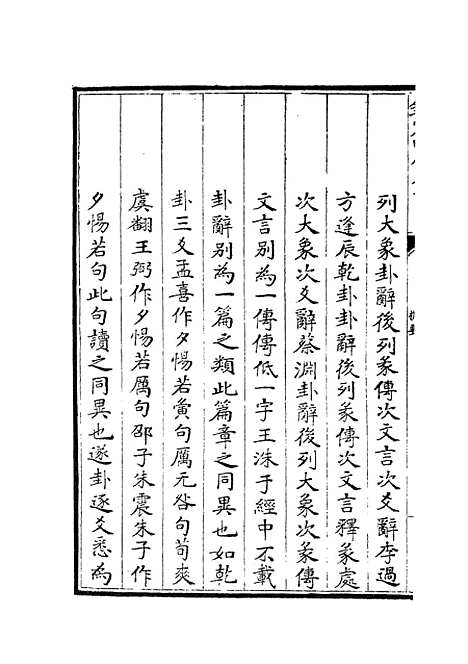 列大象卦辭後列彖傳次文言次爻辭李過
方逢辰乾卦卦辭後列彖傳次文言釋彖處
次大象次爻辭蔡淵卦辭後列大象次彖傳
文言别為一傳傳低一字王洙于經中不載
卦辭别為一篇之類此篇章之同異也如乾
卦三爻孟喜作夕惕若夤句厲无咎句荀爽
虞翻王弼作夕惕若厲句邵子朱震朱子作
夕惕若句此句讀之同異也遂卦逐爻悉為